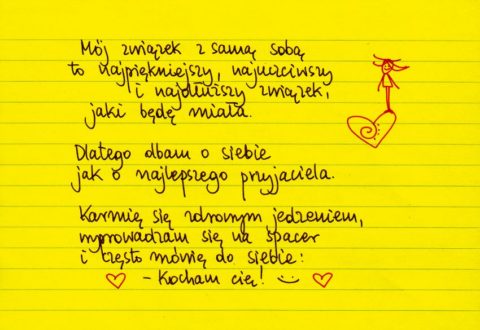 Mój związek z samą sobą
to najpiękniejszy, najuczciwszy
i najdłuższy związek,
jaki będę miała.
Dlatego dbam o siebie
jak o najlepszego przyjaciela.
Karmię się zdrowym jedzeniem,
wyprowadzam się na spacer
i często mówię do siebie:
- Kocham cię!